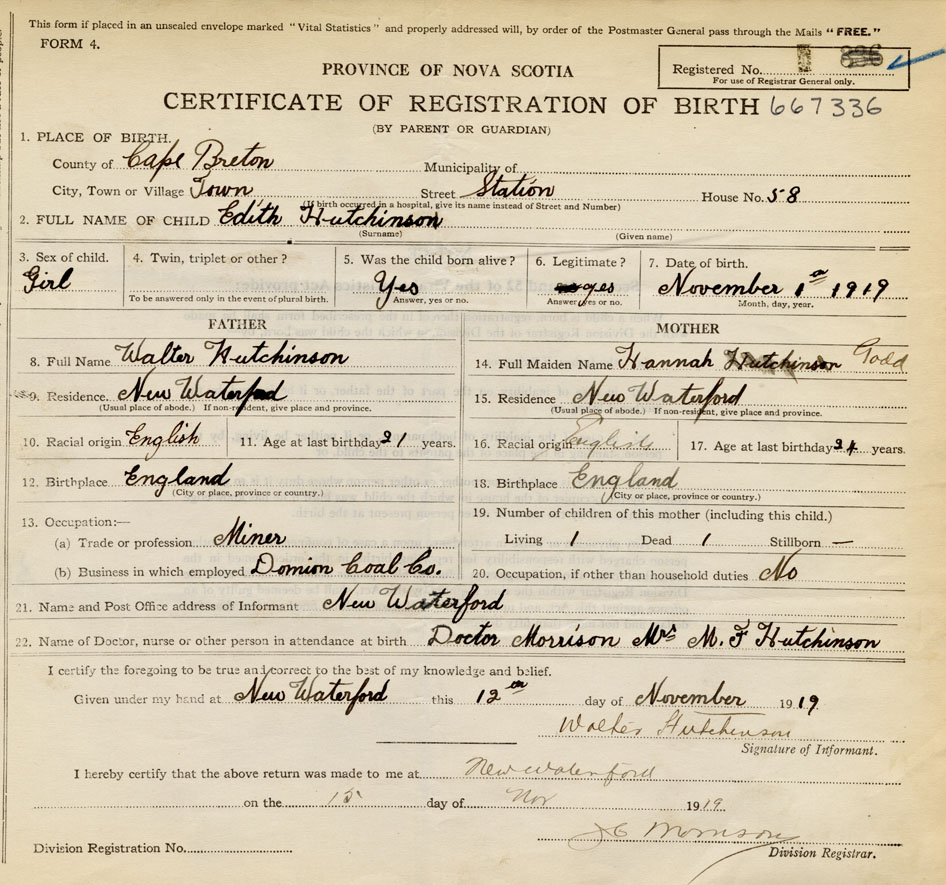 This form if placed in an unsealed envelope marked "Vital Statistics" and properly addressed will, by order of the Postmaster General pass through the Mails "FREE."
FORM 4.
Registered No.
For use of Registrar General only.
PROVINCE OF NOVA SCOTIA
CERTIFICATE OF REGISTRATION OF BIRTH 667336
(BY PARENT OR GUARDIAN)
1. PLACE OF BIRTH.
County of Cape Breton Municipality of
City, Town or Village Town Street Station House No. 58
(If birth occurred in a hospital, give its name instead of Street and Number)
2. FULL NAME OF CHILD Edith Hutchinson
(Surname) (Given name)
3. Sex of child. 4. Twin, triplet or other? 5. Was the child born alive? 6. Legitimate? 7. Date of birth.
Girl Yes yes November 1st 1919
To be answered only in the event of plural birth. Answer, yes or no. Answer, yes or no. Month, day, year.
FATHER MOTHER
8. Full Name Walter Hutchinson 14. Full Maiden Name Hannah Hutchinson Todd
9. Residence. New Waterford 15. Residence New Waterford
(Usual place of abode.) If non-resident, give place and province. (Usual place of abode.) If non-resident, give place and province.
10. Racial origin English 11. Age at last birthday 21 years. 16. Racial origin English 17. Age at last birthday 24 years.
12. Birthplace England 18. Birthplace England
(City or place, province or country.) (City or place, province or country.)
13. Occupation:— 19. Number of children of this mother (including this child.)
(a) Trade or profession. Miner Living 1 Dead 1 Stillborn —
(b) Business in which employed Domion Coal Co. 20. Occupation, if other than household duties No
21. Name and Post Office address of Informant New Waterford
22. Name of Doctor, nurse or other person in attendance at birth Doctor Morrison Mrs M. F Hutchinson
I certify the foregoing to be true and correct to the best of my knowledge and belief.
Given under my hand at New Waterford this 12th day of November 1919.
Walter Hutchinson
Signature of Informant.
I hereby certify that the above return was made to me at New Waterford
on the 15 day of Nov 1919
Morrison
Division Registration No. Division Registrar.